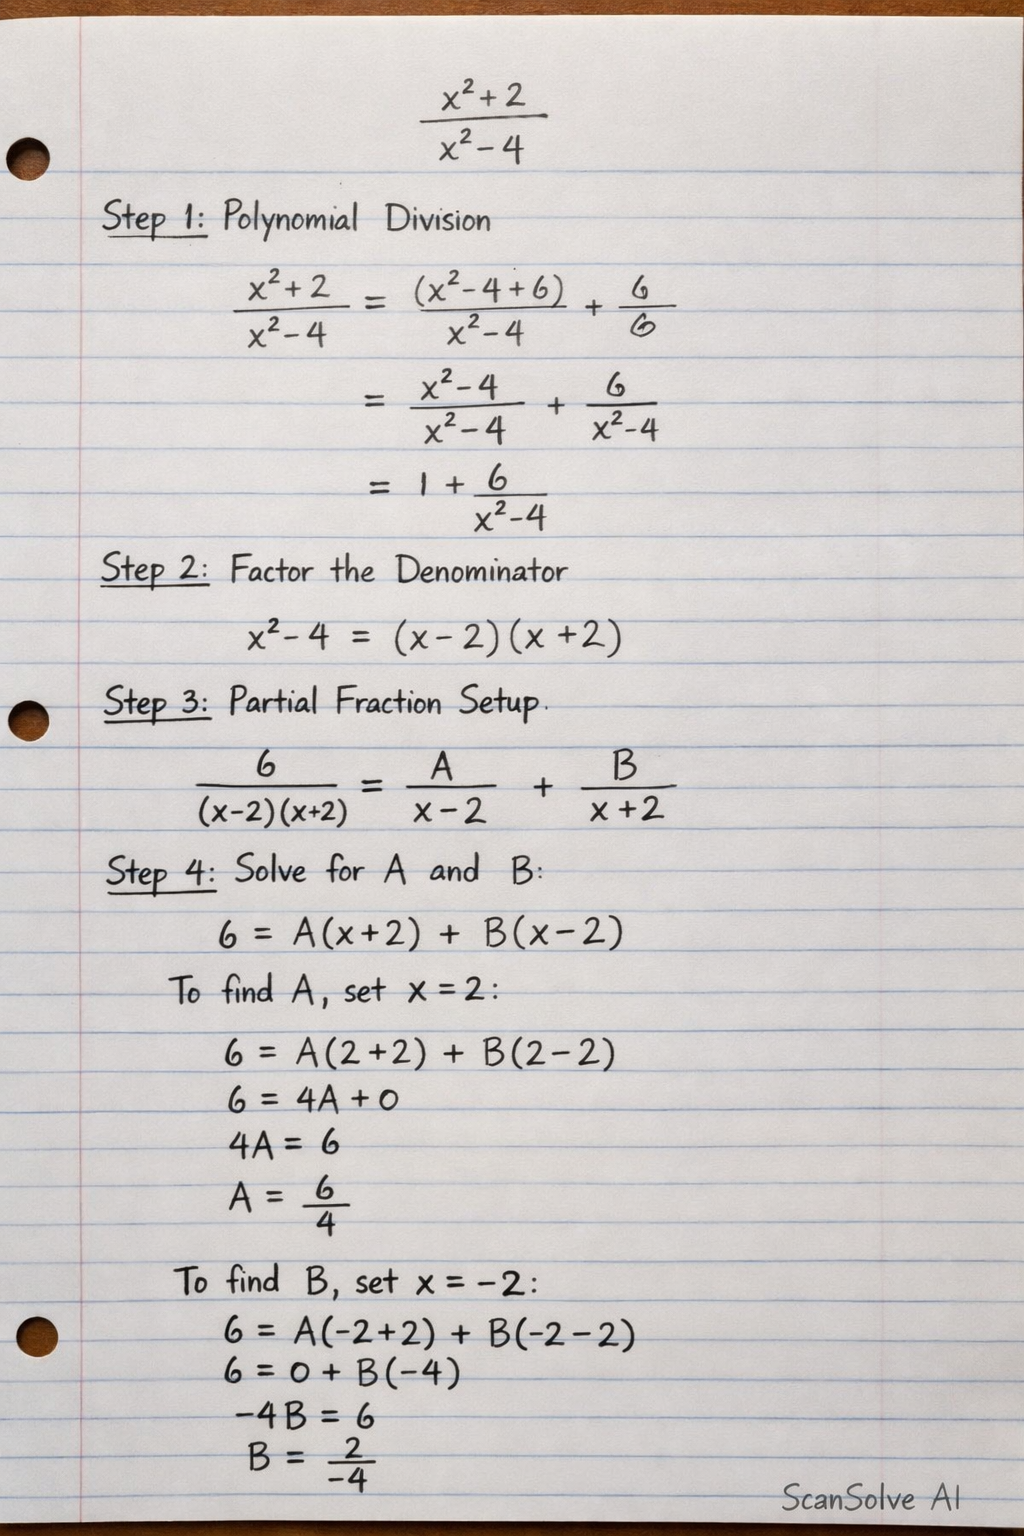 x²+2
x²-4
Step 1: Polynomial Division
x²+2/x²-4 = (x²-4+6)/x²-4 + 6/6
= x²-4/x²-4 + 6/x²-4
= 1 + 6/x²-4
Step 2: Factor the Denominator
x²-4 = (x-2)(x+2)
Step 3: Partial Fraction Setup.
6/(x-2)(x+2) = A/x-2 + B/x+2
Step 4: Solve for A and B:
6 = A(x+2) + B(x-2)
To find A, set x=2:
6 = A(2+2) + B(2-2)
6 = 4A+0
4A = 6
A = 6/4
To find B, set x=-2:
6 = A(-2+2) + B(-2-2)
6 = 0 + B(-4)
-4B = 6
B = 2/-4
ScanSolve AI